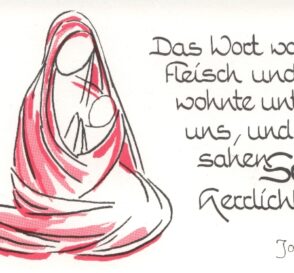 Das Wort wa
Fleisch und
wohnte unt
uns, und
sahen Se
Herrlicht
Jo